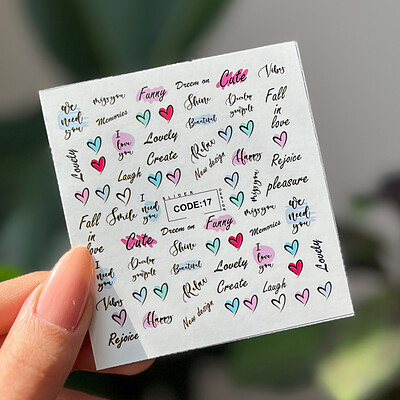 we need you
miss you
Funny
Dreem on
Cute
Vibes
Memories
Shine
Fall in love
Beautiful
I love you
Lovely
Relax
Lovely
Create
New design
Happy
Rejoice
Laugh
miss you
pleasure
Fall in love
Smile
I need you
SLIDER
CODE:17
we need you
Cute
Dreem on
Funny
miss you
Memories
Shine
I need you
Beautiful
Lovely
I love you
Lovely
Vibes
Relax
Create
Laugh
Happy
New design
Rejoice